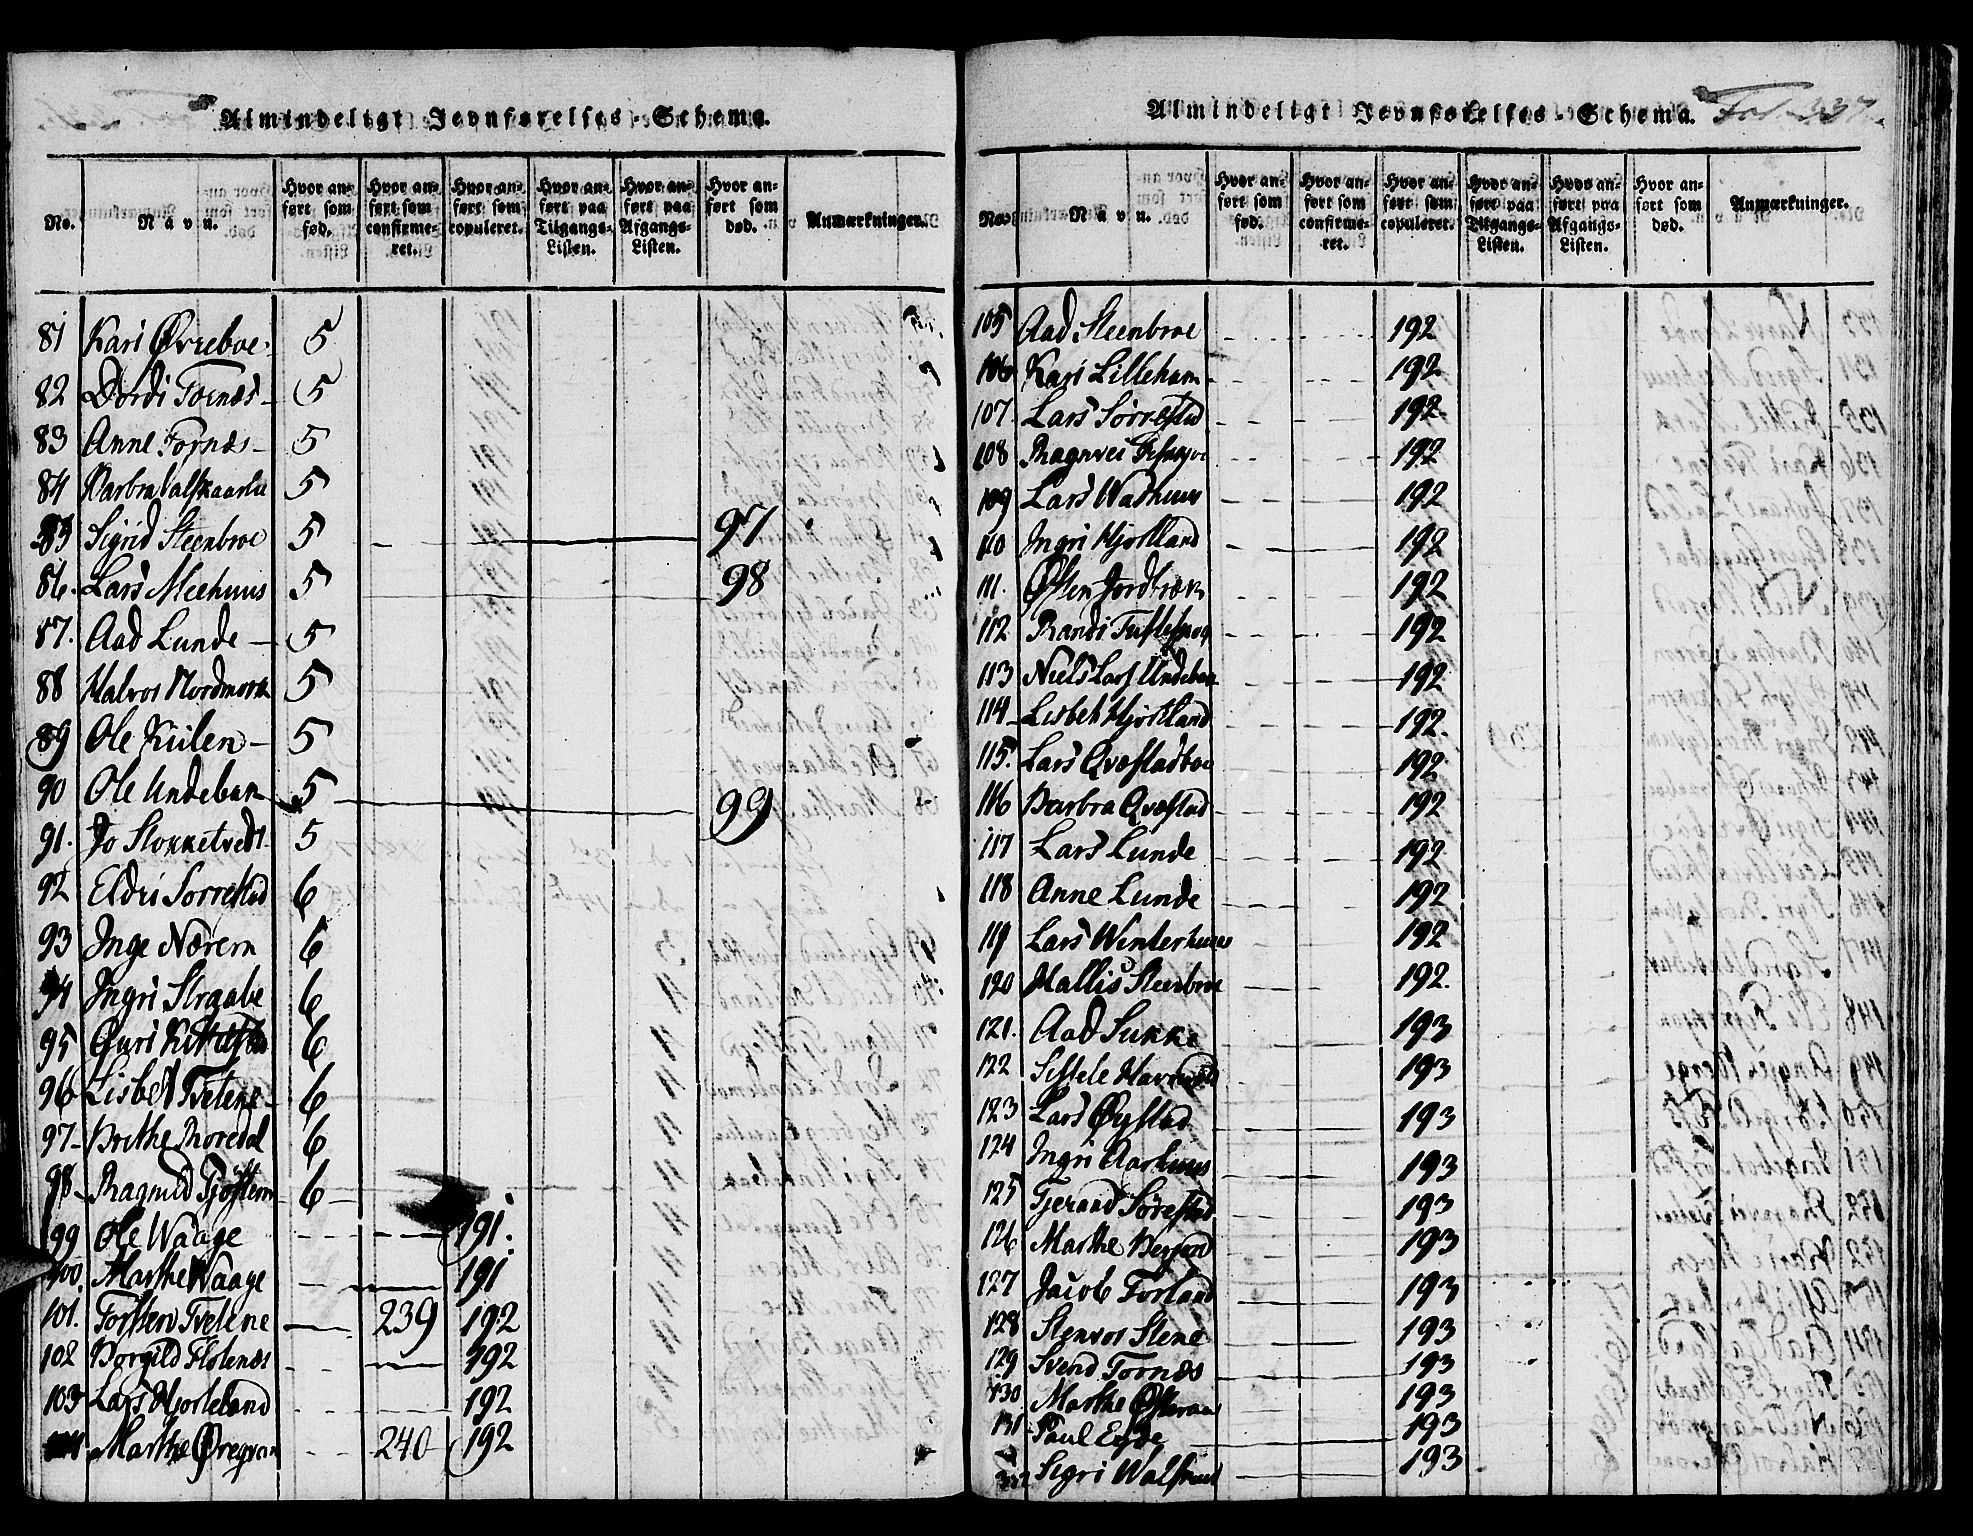 Almindeligt Jevnførelses-Schema.
No. | Navn. | Hvor anført som fød. | Hvor anført som confirmeret. | Hvor anført som copuleret. | Hvor anført paa Tilgangs-Listen. | Hvor anført paa Afgangs-Listen. | Hvor anført som død. | Anmærkninger.
81 Kari Øvreboe 5
82 Dordi Tornæs 5
83 Anne Tornæs 5
84 Barbra 5
85 Sigrid Steenbroe 5 97
86. Lars Meehuus 5 98
87. Aad Lunde 5
88 Halvor Nordmork 5
89 Ole Kiilen 5
90 Ole Undeban 5 99
91. Jo Slokketvedt 5
92 Eldri Sørrestad 6
93 Inge Nærem 6
94 Ingri Straabe 6
95 Guri 6
96 Lisbet Tvetene 6
97 Brithe 6
98 Ragnild 6
99 Ole Waage 191.
100. Marthe Waage 191
101. Torsten Tvetene 239 192
102 Borgild Flotenæs 192
103 Lars Hjorteland 192
104 Marthe 240 192
Almindeligt Jevnførelses-Schema. Fol. 337.
No. | Navn. | Hvor anført som fød. | Hvor anført som confirmeret. | Hvor anført som copuleret. | Hvor anført paa Tilgangs-Listen. | Hvor anført paa Afgangs-Listen. | Hvor anført som død. | Anmærkninger.
105 Aad Steenbroe 192
106 Kari Lilleham 192
107. Lars Sørrestad 192
108 Ragnvei 192
109 Lars Washuus 192
110 Ingri Hjortland 192
111. Østen Jordbræk 192
112 Randi 192
113 Niels Lars Undeban 192
114 Lisbeh Hjortland 192
115. Lars Qvæstadboe 192
116 Barbra Qvæstad 192
117 Lars Lunde 192
118 Anne Lunde 192
119 Lars Winterhuus 192
120 Mallis Steenbroe 192.
121. Aad Sukke 193
122 Sissele 193
123 Lars Øystad 193
124 Ingri Aarhuus 193
125 Tjerand Sørestad 193
126 Marthe 193
127 Jacob Forland 193
128 Stenvor Stene 193
129 Svend Tornæs 193
130 Marthe 193
131 Paul Eyde 193
132 Sigri 193